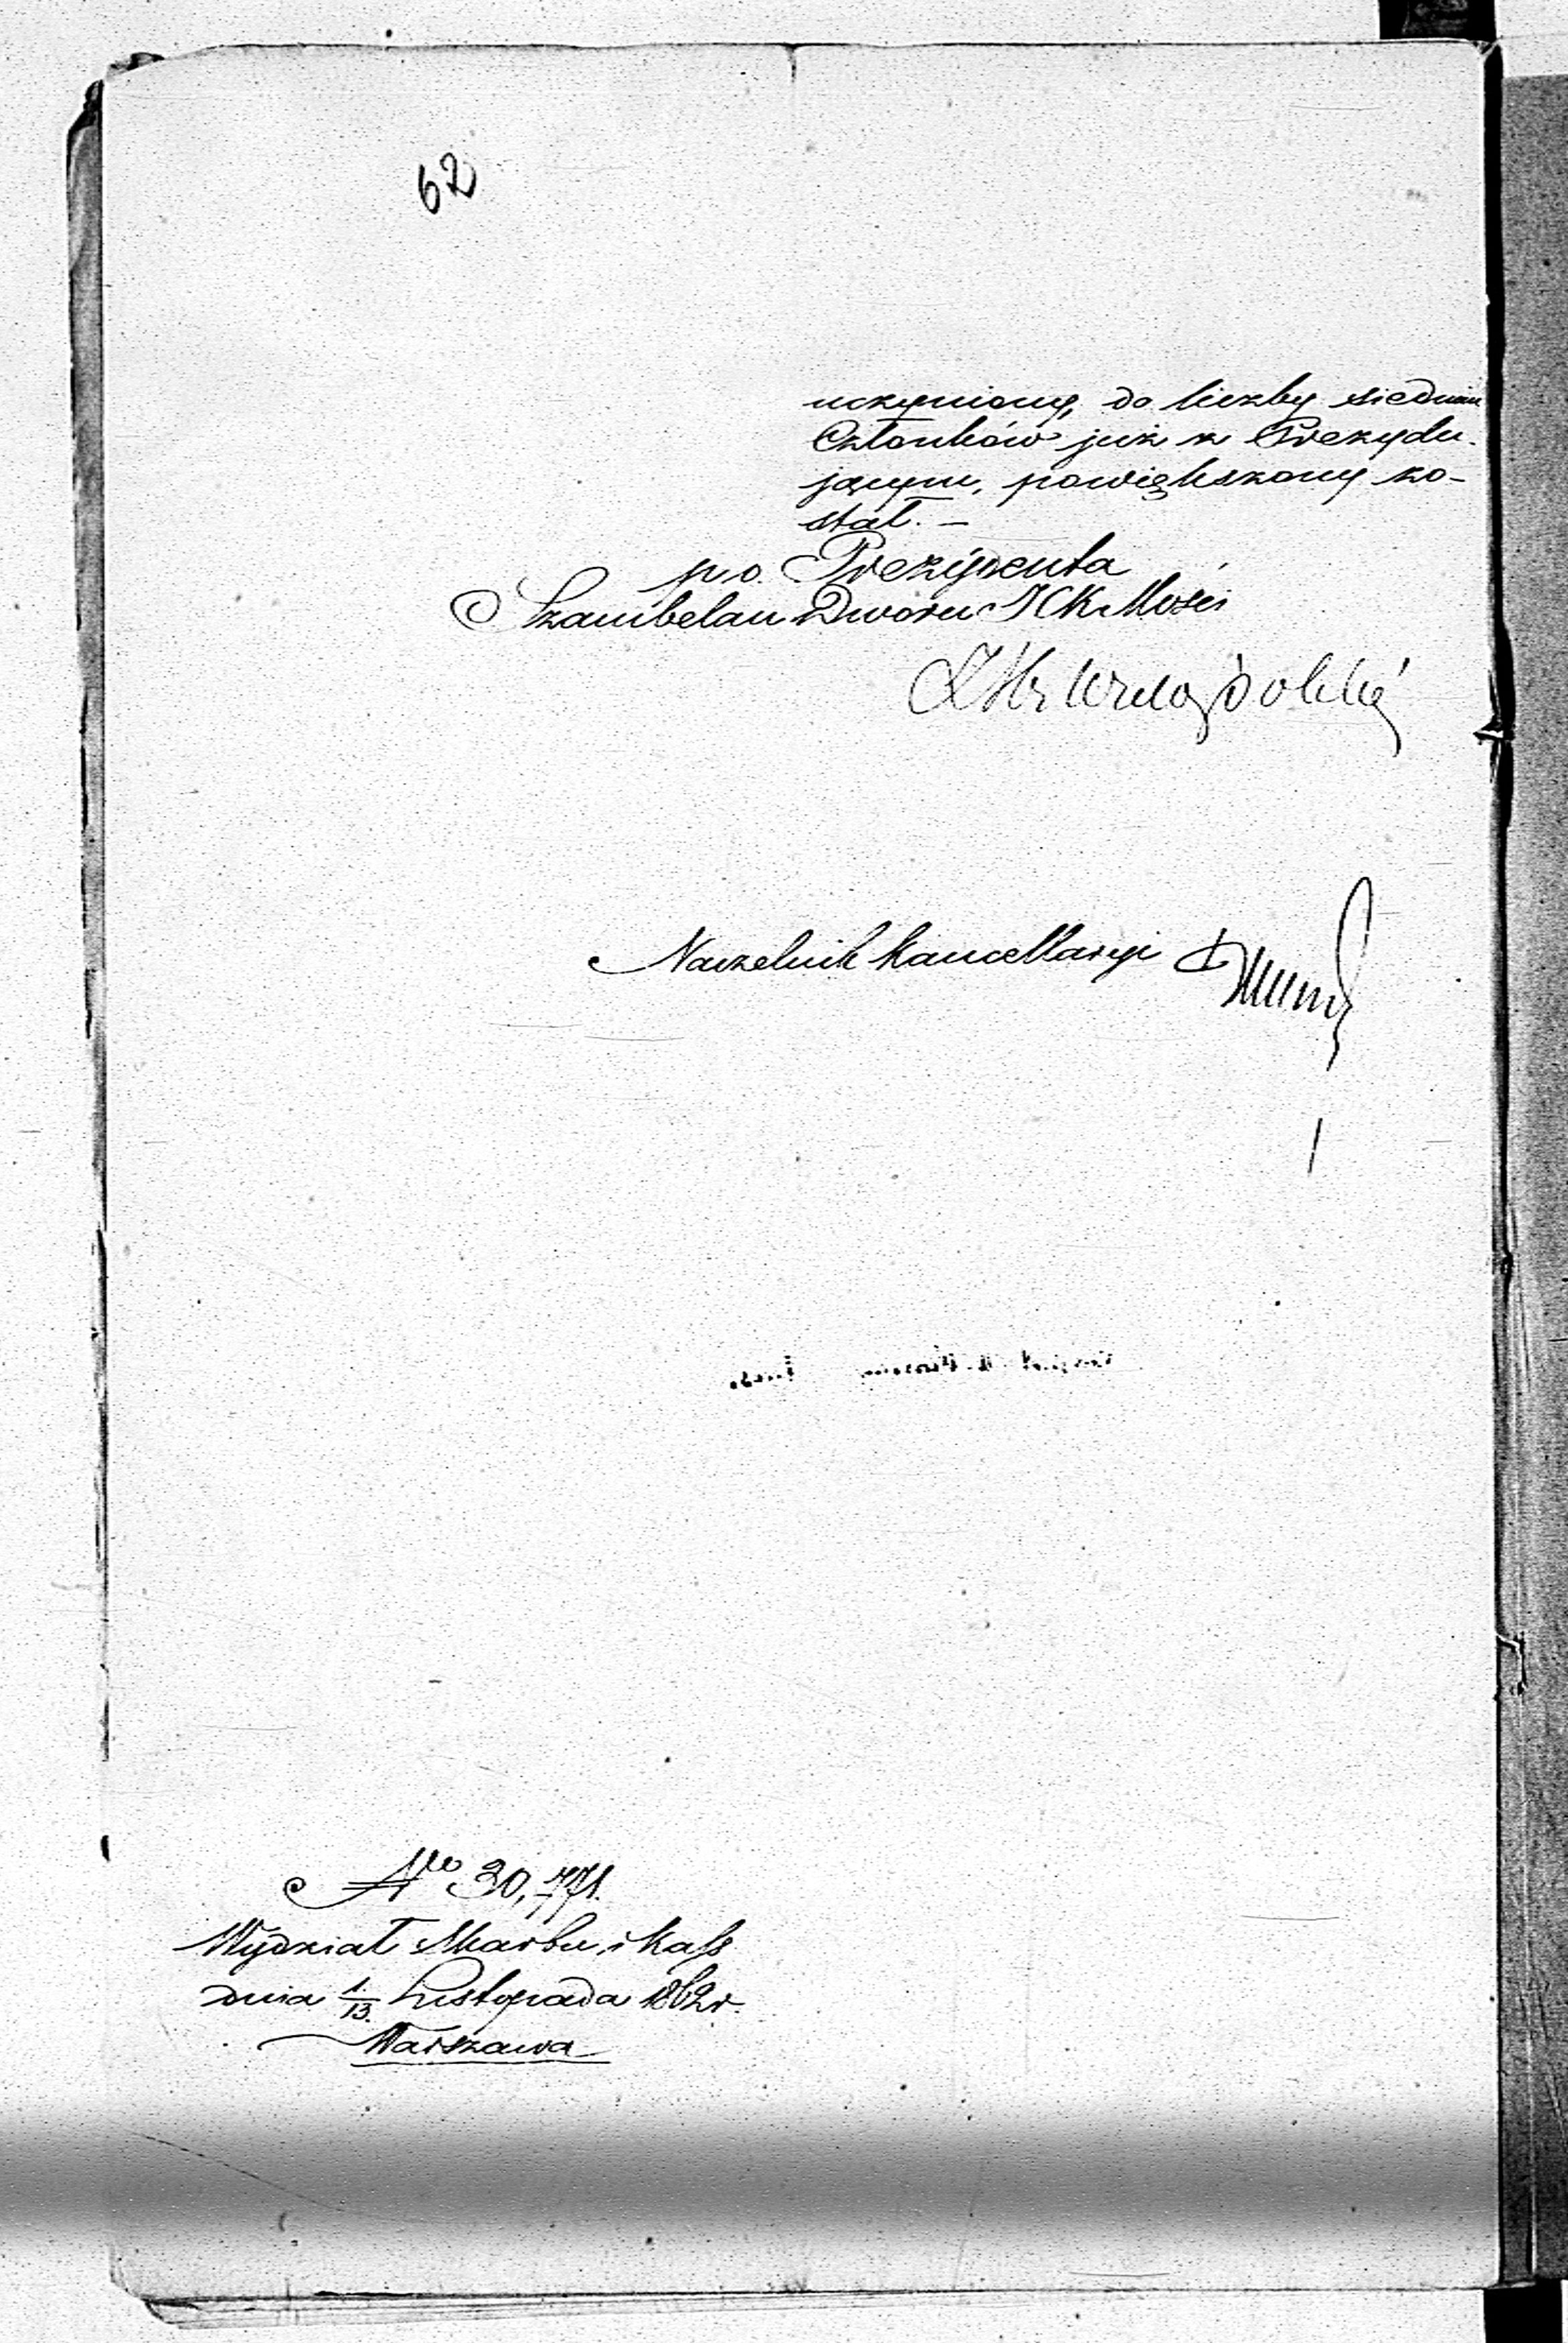 62
uczyniony, do liczby siedmiu
Członków już z Prezydu-
jącym, powiększony zo-
stał. —
p.o. Prezydenta
Szambelan Dworu JCK Mości
Z Hr. Wielopolski
Naczelnik Kancellaryi
No 30,771.
Wydział Skarbu, i Kass
dnia 1/13. Listopada 1862 r.
Warszawa